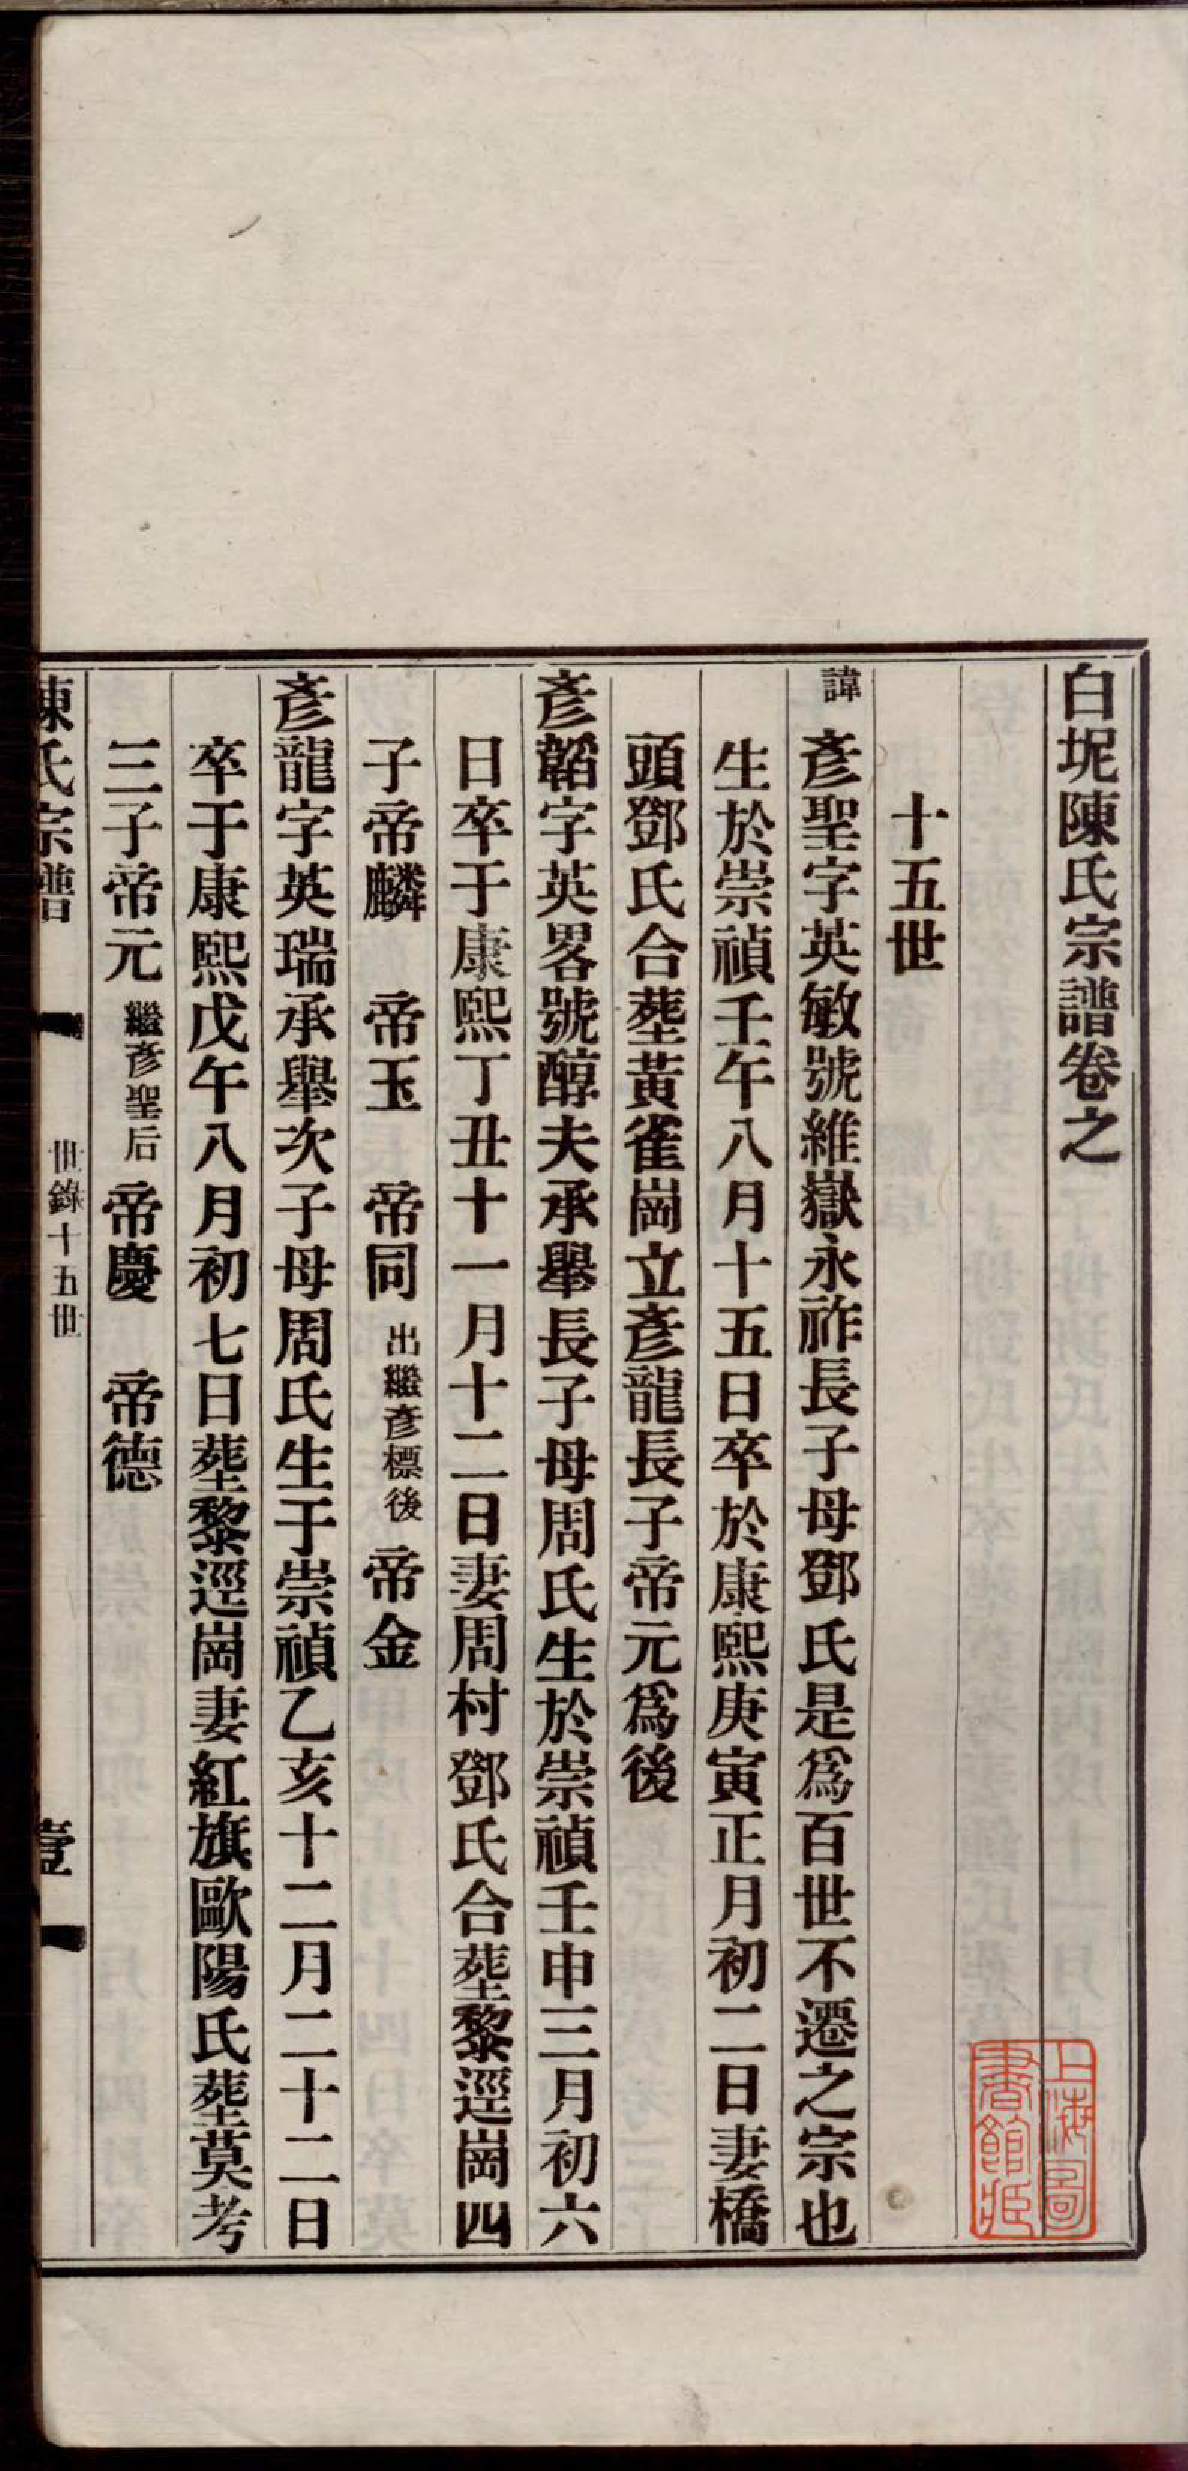 白坭陳氏宗譜卷之
十五世
諱彥聖字英敏號維嶽永祚長子母鄧氏是爲百世不遷之宗也
生於崇禎壬午八月十五日卒於康熙庚寅正月初二日妻橋
頭鄧氏合塟黃雀崗立彥龍長子帝元爲後
彥韜字英畧號醇夫承舉長子母周氏生於崇禎壬申三月初六
日卒于康熙丁丑十一月十二日妻周村鄧氏合塟黎逕崗四
子帝麟　帝玉　帝同出繼彥標後帝金
彥龍字英瑞承舉次子母周氏生于崇禎乙亥十二月二十二日
卒于康熙戊午八月初七日塟黎逕崗妻紅旗歐陽氏塟莫考
三子帝元繼彥聖后帝慶　帝德
陳氏宗譜　世錄十五世　壹
上海圖
書館藏